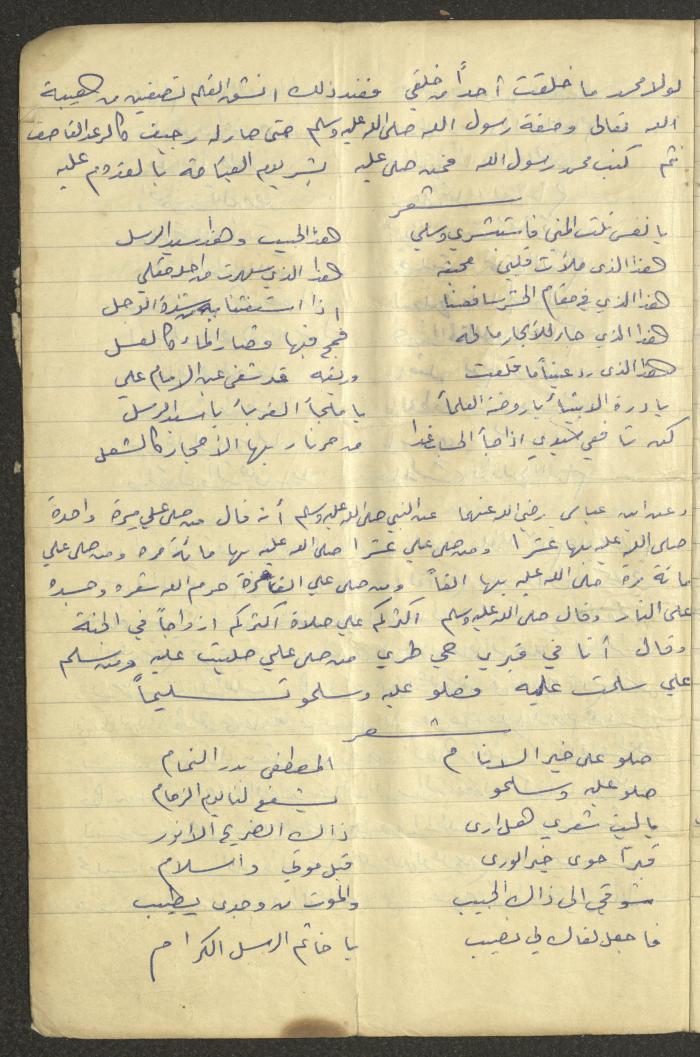 لولا محمد ما خلقت أحداً من خلقي فعند ذلك انشق القلم نصفين من هيبة
الله تعالى وصفة رسول الله صلى الله عليه وسلم حتى صار له رجيف كالرعد القاصف
ثم كتب محمد رسول الله فمن صلى عليه بشر يوم القيامة بالقدوم عليه
شعر
يا نفس نلت المنى فاستبشري وسلي هذا الحبيب وهذا سيد الرسل
هذا الذي ملأت قلبي محبته هذا الذي سهرت من اجله مقلي
هذا الذي في مقام الحشر شافعنا اذا استغثنا به من شدة الوجل
هذا الذي جاز للأبحار مالحة فمج فيها فصار الماء كالعسل
هذا الذي رد عيناً ما قلعت وريقه قد شفى عين الامام علي
يا درة الانبياء يا روضة العلماء يا ملجأ الغرباء يا سيد الرسل
كن شافعي سيدي اذا جاء الحساب غدا من حر نار بها الأحجار كالشعل
وعن ابن عباس رضي الله عنهما عن النبي صلى الله عليه وسلم أنه قال من صلى علي مرة واحدة
صلى الله عليه بها عشرا ومن صلى علي عشرا صلى الله عليه بها مائة مره ومن صلى علي
مائة مرة صلى الله عليه بها الفاً ومن صلى علي الفا مرة حرم الله شعره وجسده
على النار وقال صلى الله عليه وسلم اكثركم علي صلاة اكثركم ازواجاً في الجنة
وقال أنا في قبري حي طري من صلى علي صليت عليه ومن سلم
علي سلمت عليه فصلو عليه وسلمو تسليماً
شعر
صلو على خير الانام المصطفى بدر التمام
صلو عليه وسلمو يشفع لنا يوم الزحام
يا ليت شعري هل ارى ذاك الضريح الانور
قبراً حوى خير الورى قبل موتي والسلام
شوقي الى ذاك الحبيب والموت من وجدي يطيب
فاجعل لقاك لي نصيب يا خاتم الرسل الكرام